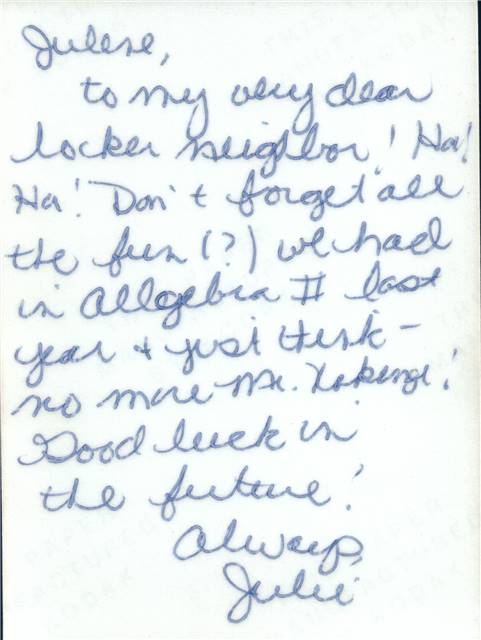 Julene,
to my very dear
locker neighbor! Ha!
Ha! Don't forget all
the fun (?) we had
in Allgebra II last
year + just think -
no more Mr.
Good luck in
the future!
Always,
Julie